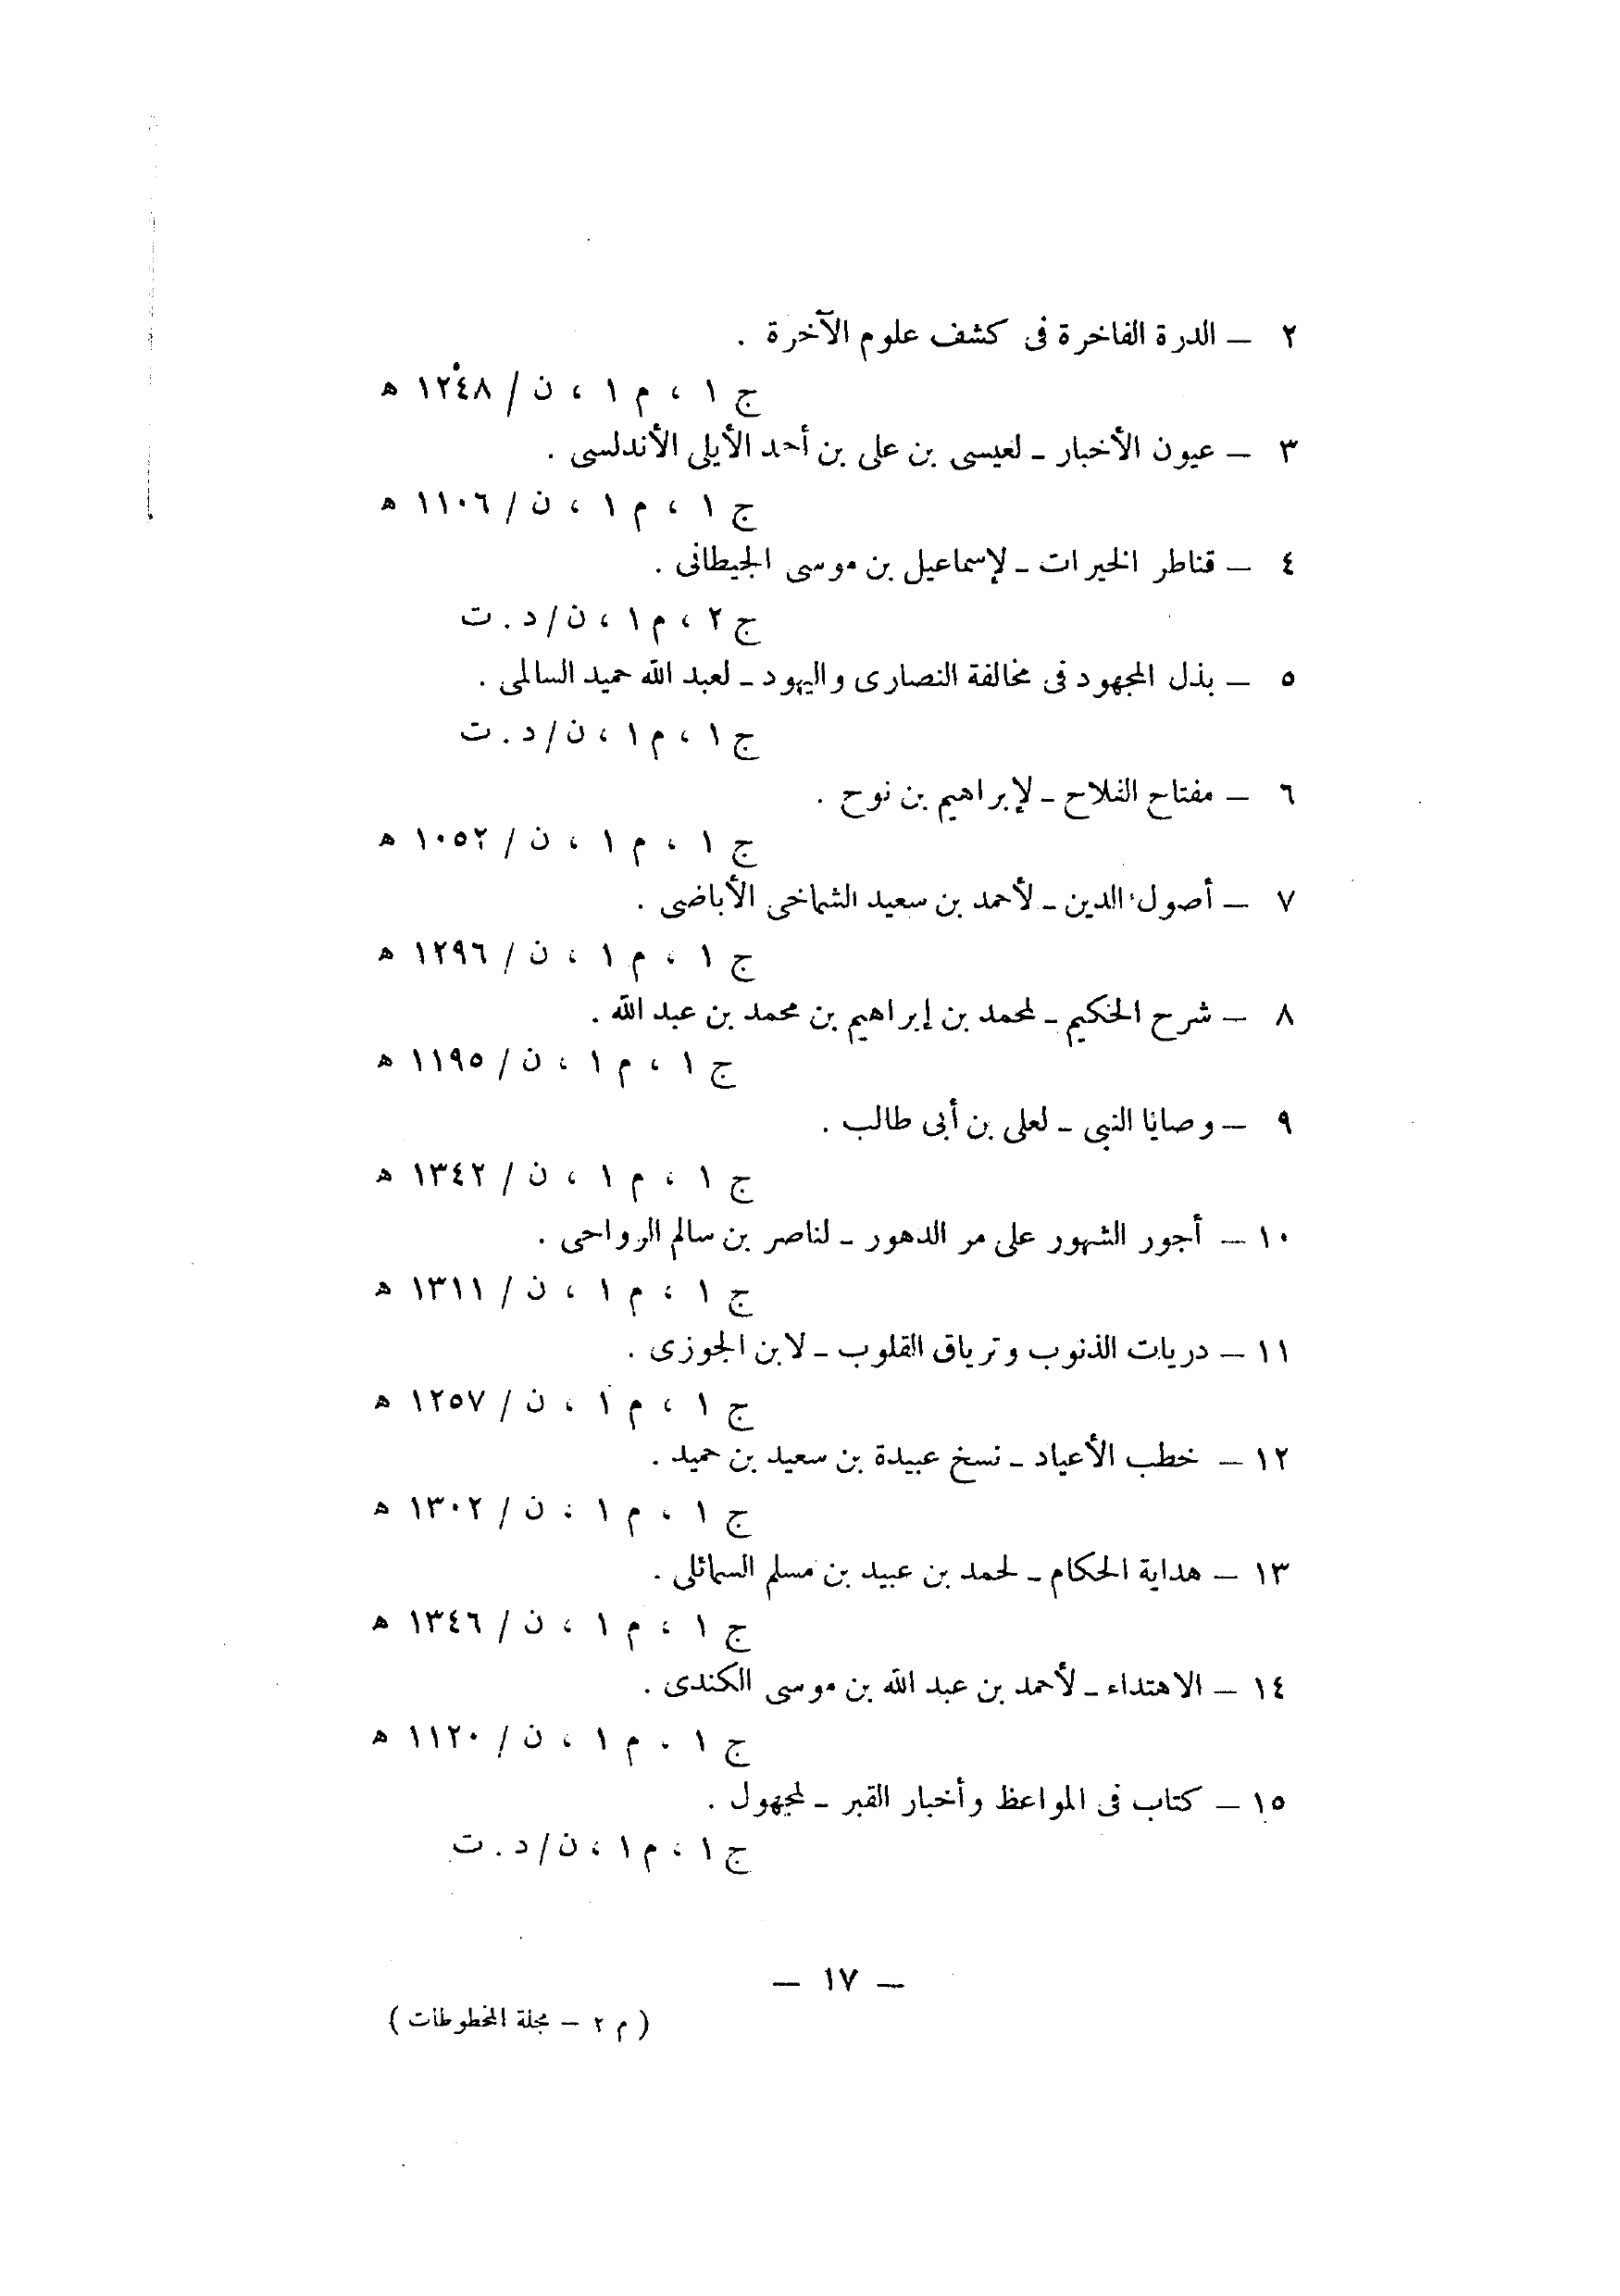 ٢ — الدرة الفاخرة فى كشف علوم الآخرة .
ج ١ ، م ١ ، ن / ١٢٤٨ ه
٣ — عيون الأخبار – لعيسى بن على بن أحد الأيلى الأندلسى .
ج ١ ، م ١ ، ن / ١١٠٦ ه
٤ — قناطر الخيرات – لإسماعيل بن موسى الجيطانى .
ج ٢ ، م ١ ، ن / د . ت
٥ — بذل المجهود فى مخالفة النصارى واليهود – لعبد الله حميد السالمى .
ج ١ ، م ١ ، ن / د . ت
٦ — مفتاح الفلاح – لإبراهيم بن نوح .
ج ١ ، م ١ ، ن / ١٠٥٢ ه
٧ — أصول الدين – لأحمد بن سعيد الشماخى الأباضى .
ج ١ ، م ١ ، ن / ١٢٩٦ ه
٨ — شرح الحكيم – لمحمد بن إبراهيم بن محمد بن عبد الله .
ج ١ ، م ١ ، ن / ١١٩٥ ه
٩ — وصايا النبى – لعلى بن أبى طالب .
ج ١ ، م ١ ، ن / ١٣٤٢ ه
١٠ — أجور الشهور على مر الدهور – لناصر بن سالم الرواحى .
ج ١ ، م ١ ، ن / ١٣١١ ه
١١ — دريات الذنوب وترياق القلوب – لابن الجوزى .
ج ١ ، م ١ ، ن / ١٢٥٧ ه
١٢ — خطب الأعياد – نسخ عبيدة بن سعيد بن حميد .
ج ١ ، م ١ ، ن / ١٣٠٢ ه
١٣ — هداية الحكام – لحمد بن عبيد بن مسلم السمائلى .
ج ١ ، م ١ ، ن / ١٣٤٦ ه
١٤ — الاهتداء – لأحمد بن عبد الله بن موسى الكندى .
ج ١ ، م ١ ، ن / ١١٢٠ ه
١٥ — كتاب فى المواعظ وأخبار القبر – لمجهول .
ج ١ ، م ١ ، ن / د . ت
— ١٧ —
( م ٢ – مجلة المخطوطات )